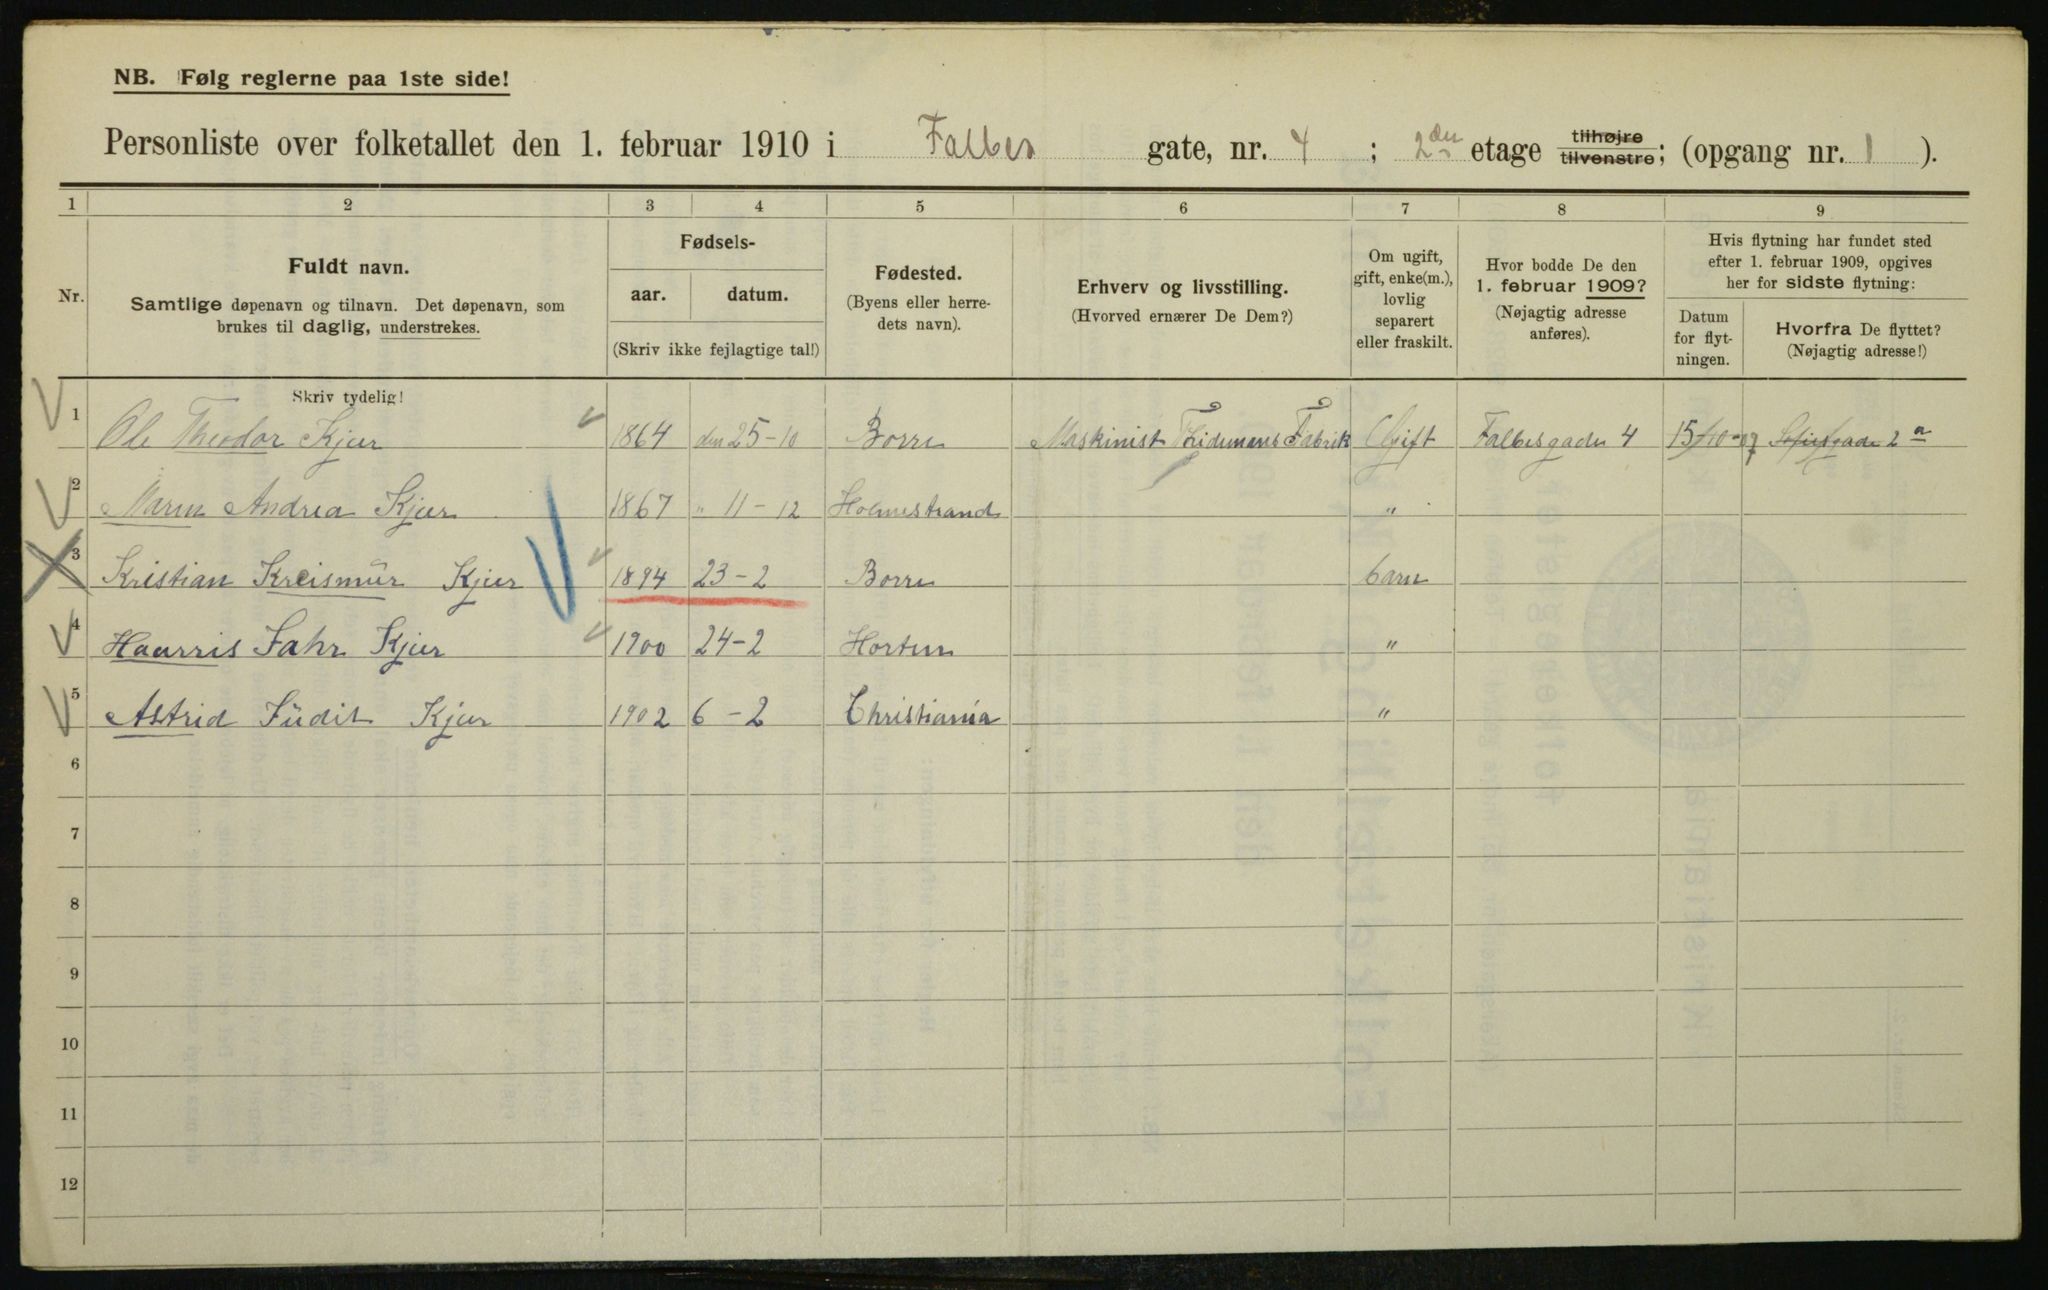 NB. Følg reglerne paa 1ste side!
Personliste over folketallet den 1. februar 1910 i Falbes gate, nr. 4 ; 2den etage tilhøjre tilvenstre; (opgang nr. 1 ).
1 2 3 4 5 6 7 8 9
Nr.
Fuldt navn.
Samtlige døpenavn og tilnavn. Det døpenavn, som
brukes til daglig, understrekes.
Fødsels-
aar. datum.
(Skriv ikke fejlagtige tal!)
Fødested.
(Byens eller herre-
dets navn).
Erhverv og livsstilling.
(Hvorved ernærer De Dem?)
Om ugift,
gift, enke(m.),
lovlig
separert
eller fraskilt.
Hvor bodde De den
1. februar 1909?
(Nøjagtig adresse
anføres).
Hvis flytning har fundet sted
efter 1. februar 1909, opgives
her for sidste flytning:
Datum
for flyt-
ningen.
Hvorfra De flyttet?
(Nøjagtig adresse!)
Skriv tydelig!
1 Ole Theodor Kjær 1864 den 25-10 Borre Maskinist Tidemans Fabrik Gift Falbesgade 4 15/10-07 2 a
2 Maren Andrea Kjær 1867 " 11-12 Holmestrand "
3 Kristian Kreismür Kjær 1894 23-2 Borre barn
4 Haurris Fahr Kjær 1900 24-2 Horten "
5 Astrid Jüdit Kjær 1902 6-2 Christiania "
6
7
8
9
10
11
12